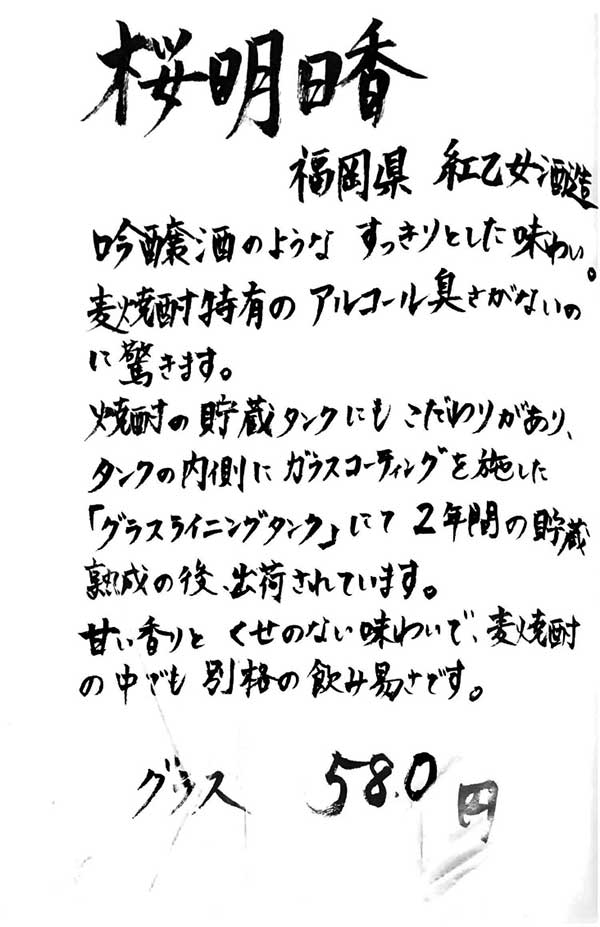 桜明日香
福岡県 紅乙女酒造
吟醸酒のような すっきりとした味わい。
麦焼酎特有の アルコール臭さがないの
に驚きます。
焼酎の貯蔵タンクにも こだわりがあり、
タンクの内側に ガラスコーティングを施した
「グラスライニングタンク」にて 2年間の貯蔵
熟成の後、出荷されています。
甘い香りと くせのない味わいで、麦焼酎
の中でも 別格の飲み易さです。
グラス 580円